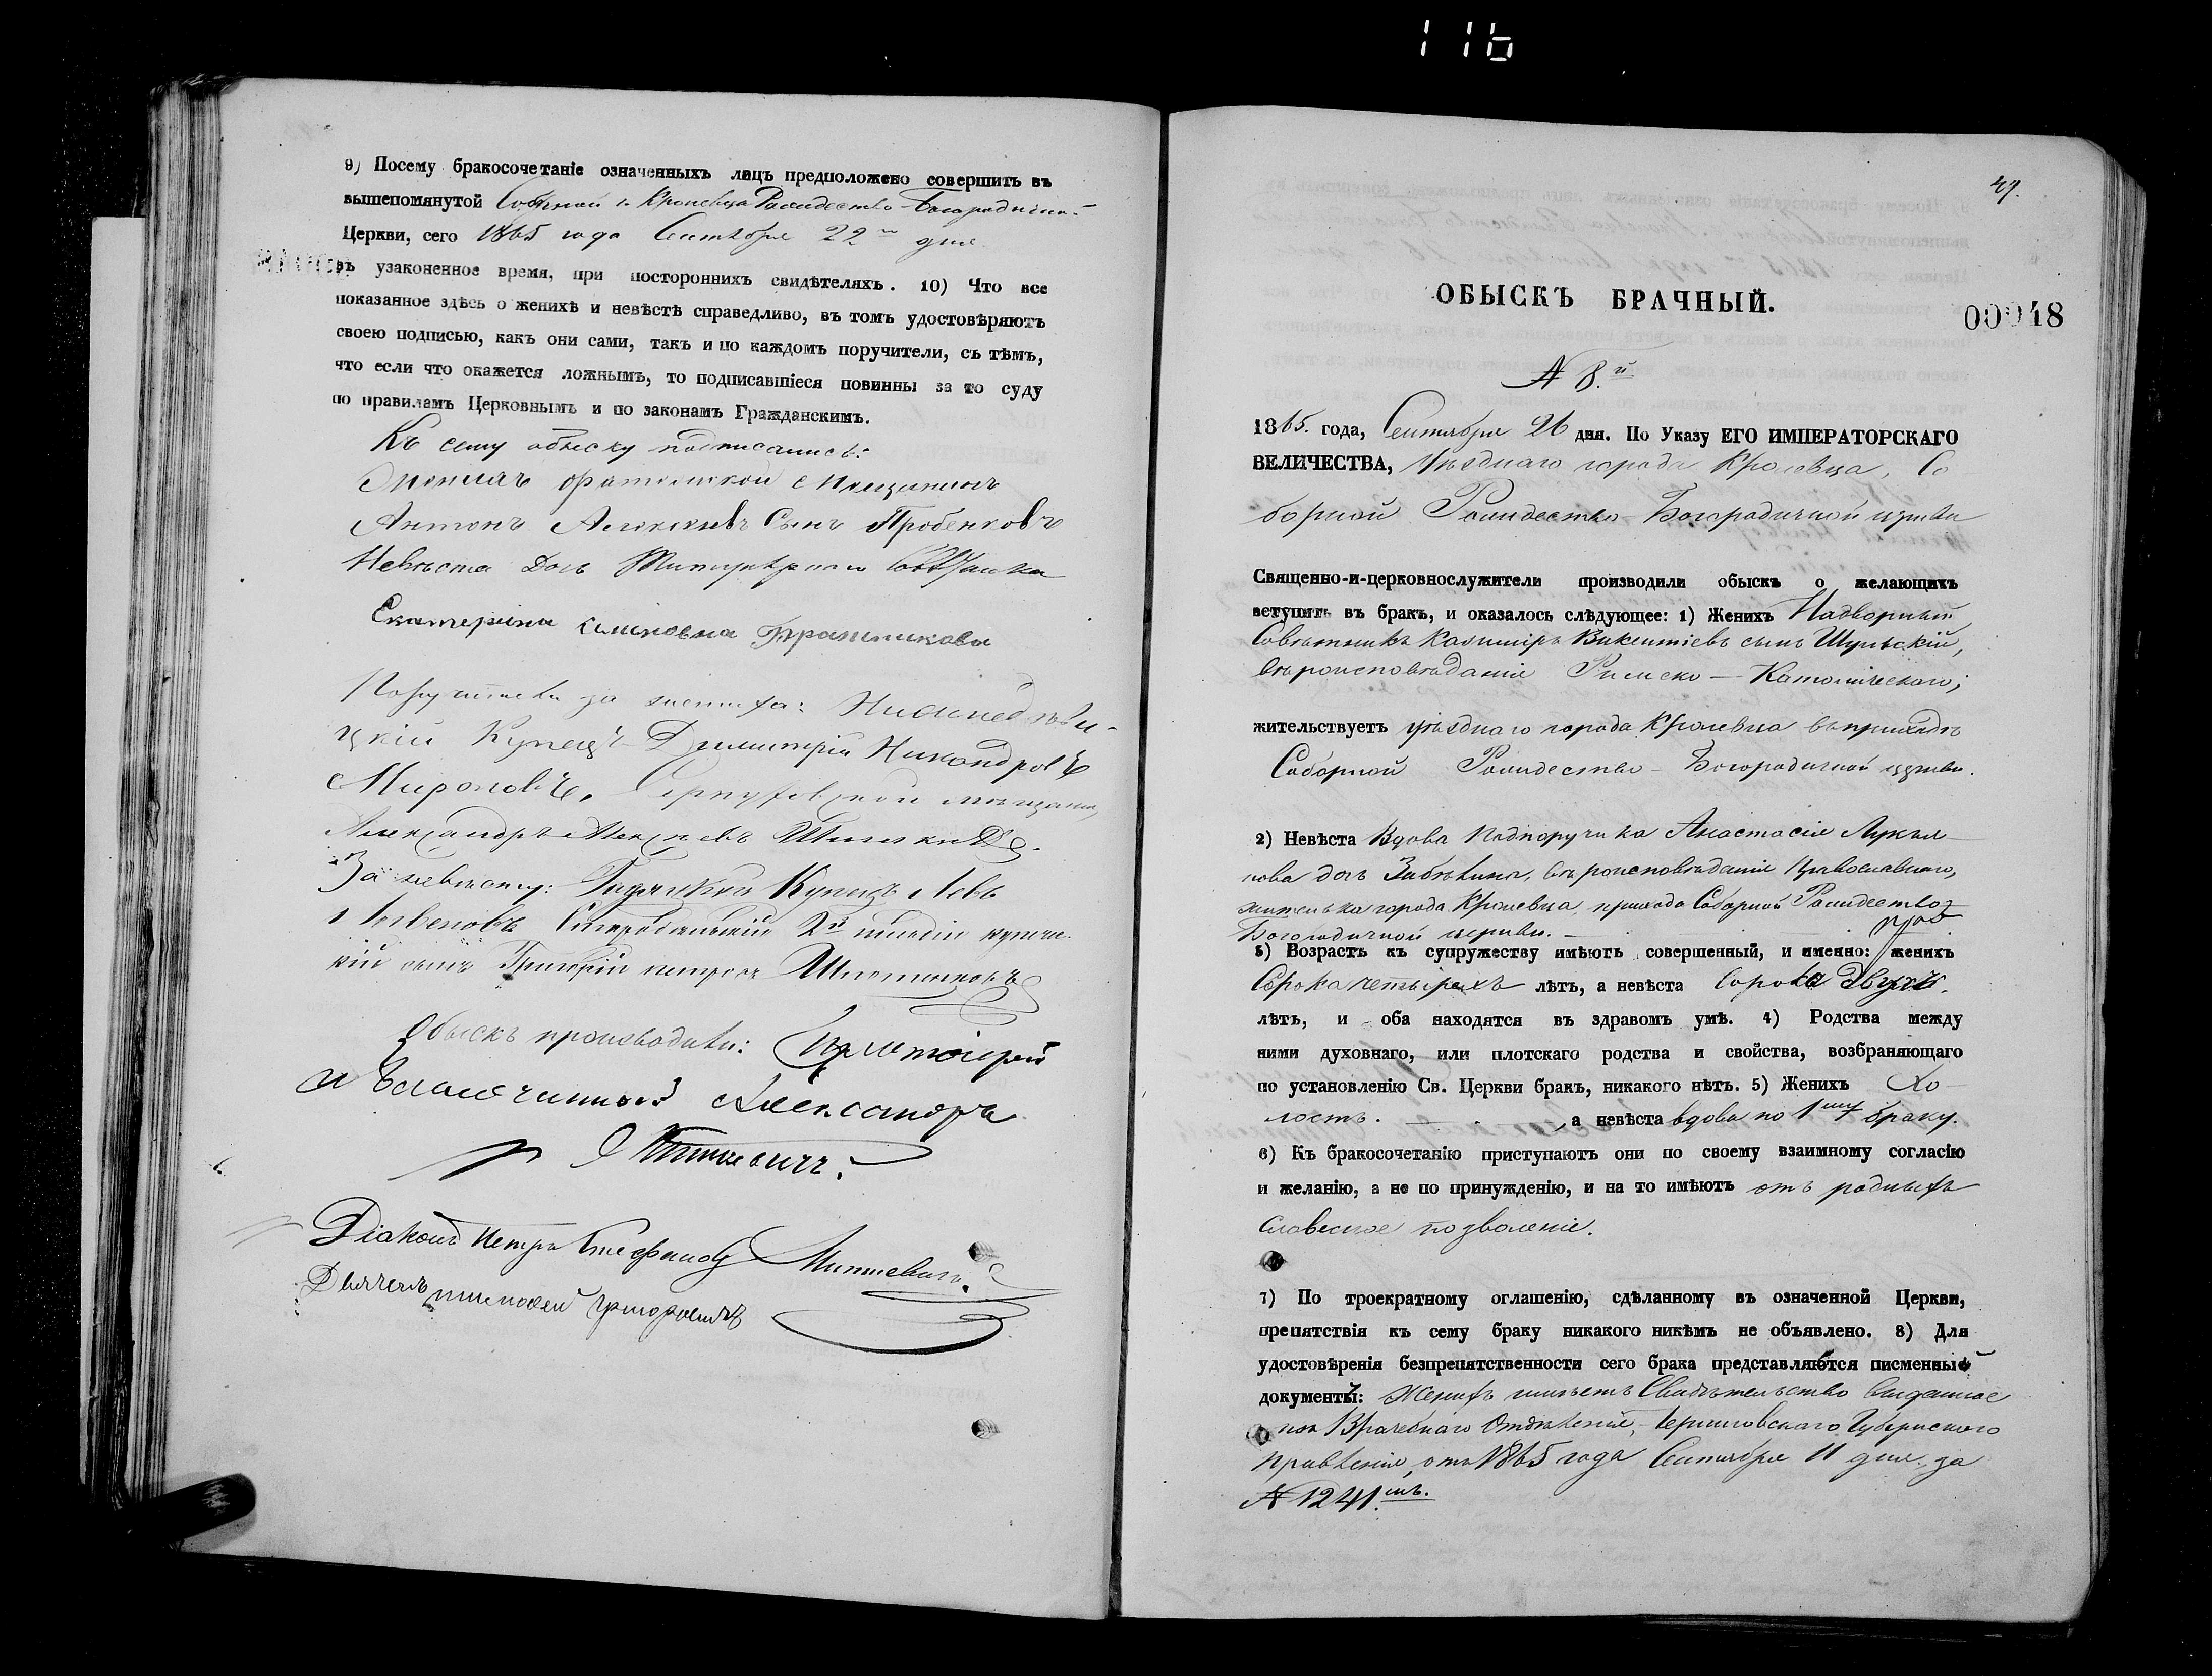 116
9) Посему бракосочетаніе означенныхъ лицъ предположено совершить въ
вышепомянутой Соборной г. Кролевца Рождество-Богородичной
Церкви, сего 1865 года Сентября 22го дня
въ узаконенное время, при постороннихъ свидѣтеляхъ. 10) Что все
показанное здѣсь о женихѣ и невѣстѣ справедливо, въ томъ удостовѣряютъ
своею подписью, какъ они сами, такъ и по каждомъ поручители, съ тѣмъ,
что если что окажется ложнымъ, то подписавшіеся повинны за то суду
по правиламъ Церковнымъ и по законамъ Гражданскимъ.
Къ сему обыску подписались:
Антонъ Алексѣевъ Сынъ
Невѣста Дочь
Екатерина
Поручители за жениха:
Купецъ Димитрій Никандровъ
Мироновъ, Серпуховской мѣщанинъ
Александръ Алексѣевъ
За невѣсту: Купецъ Левъ
2й гильдіи купече
кій сынъ Григорій Петровъ
Обыскъ производили: Протоіерей
и Благочинный Александръ
Діаконъ Петръ Стефановъ
Дьячекъ Тимофей Григоровичъ
49.
ОБЫСКЪ БРАЧНЫЙ.
00048
N 8.й
1865. года, Сентября 26 дня. По Указу ЕГО ИМПЕРАТОРСКАГО
ВЕЛИЧЕСТВА, Уѣзднаго города Кролевца, Со
борной Рождество-Богородичной церкви
Священно-и-церковнослужители производили обыскъ о желающихъ
вступить въ бракъ, и оказалось слѣдующее: 1) Женихъ Надворный
Совѣтникъ Казимiръ Викентіевъ сынъ Шульскій,
вѣроисповѣданія Римско-Католическаго;
жительствуетъ уѣзднаго города Кролевца въ приходѣ
Соборной Рождество-Богородичной церкви.
2) Невѣста Вдова Подпоручика Анастасія Лукья
нова дочь Забѣлина, вѣроисповѣданія Православнаго,
жителька города Кролевца, прихода Соборной Рождество
Богородичной церкви.
3) Возрастъ къ супружеству имѣютъ совершенный, и именно: женихъ
Сорока четырехъ лѣтъ, а невѣста Сорока двухъ.
лѣтъ, и оба находятся въ здравомъ умѣ. 4) Родства между
ними духовнаго, или плотскаго родства и свойства, возбраняющаго
по установленію Св. Церкви бракъ, никакого нѣтъ. 5) Женихъ Хо
лостъ. , а невѣста вдова по 1му браку.
6) Къ бракосочетанію приступаютъ они по своему взаимному согласію
и желанію, а не по принужденію, и на то имѣютъ отъ родныхъ
словесное позволеніе.
7) По троекратному оглашенію, сдѣланному въ означенной Церкви,
препятствія къ сему браку никакого никѣмъ не объявлено. 8) Для
удостовѣренія безпрепятственности сего брака представляются писменный
документъ: Женихъ имѣетъ Свидѣтельство выданное
изъ Врачебнаго Отдѣленія, Черниговскаго Губернского
правленія, отъ 1865 года Сентября 11 дня, за
N 1241.мъ.